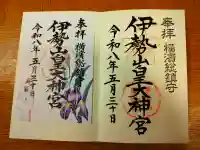 奉拝 横濱総鎮守
伊勢山皇大神宮
令和八年五月三十日
奉拝 横濱総鎮守
伊勢山皇大神宮
令和八年五月三十日